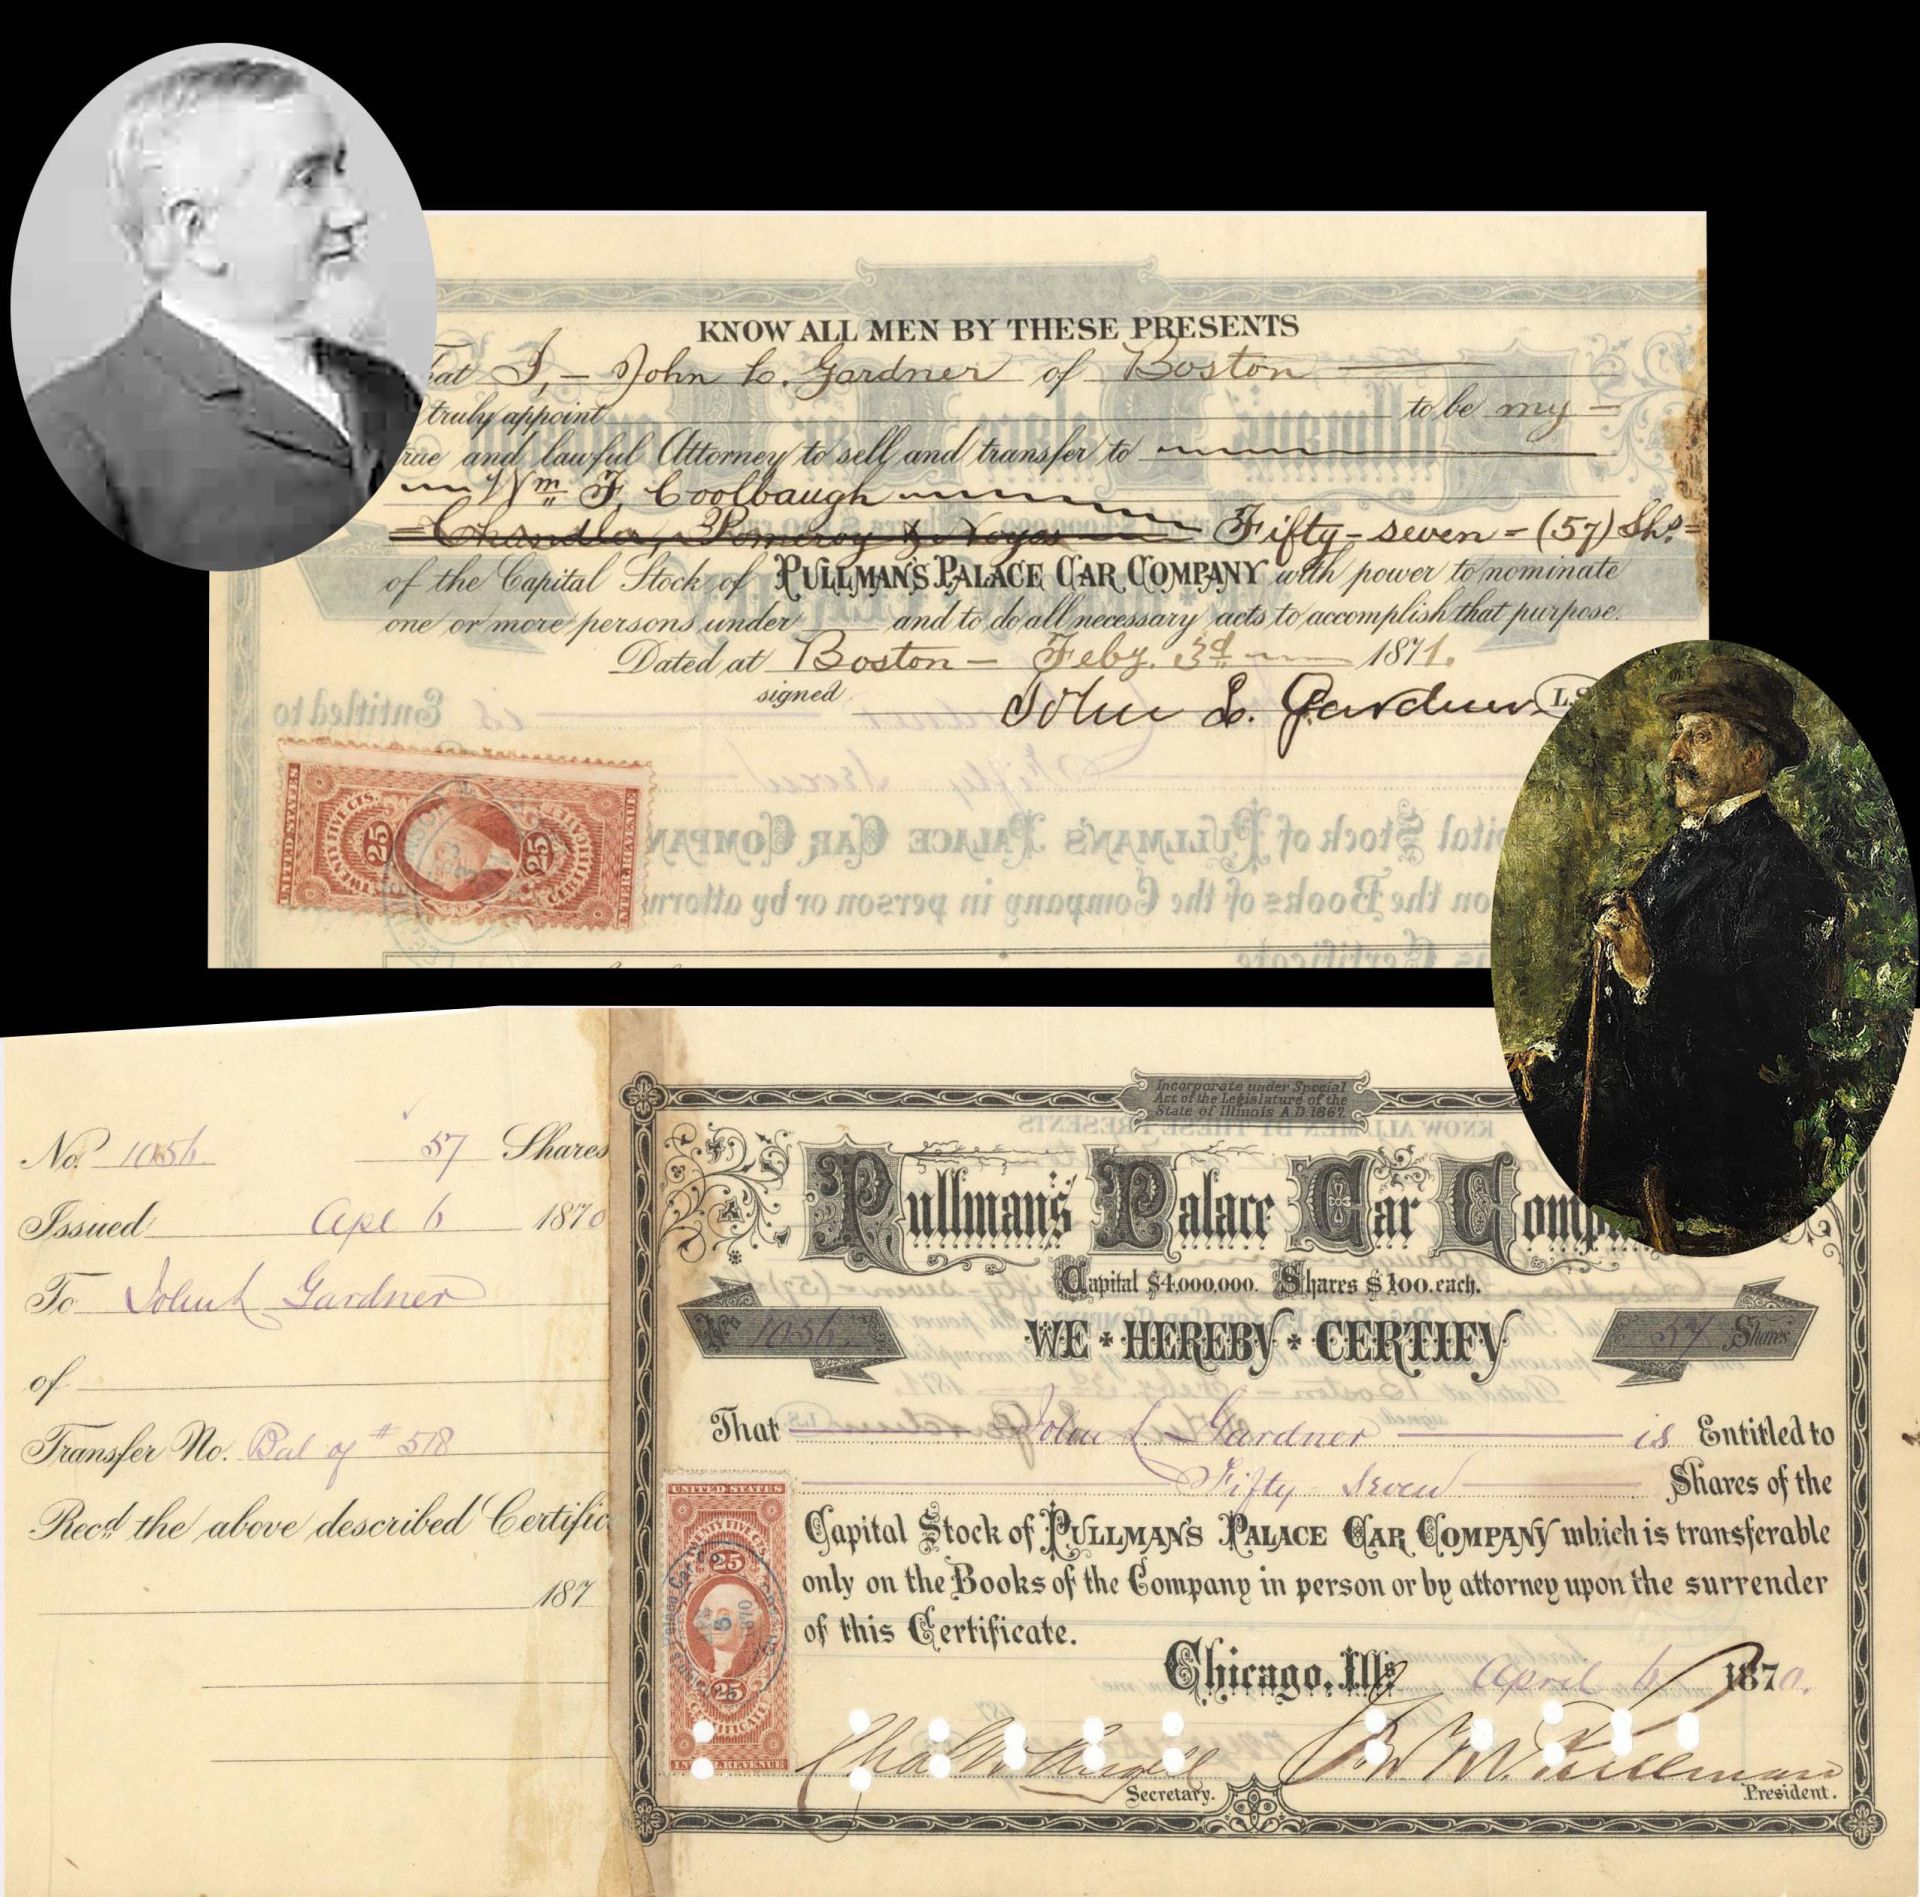 KNOW ALL MEN BY THESE PRESENTS
I, John L. Gardner of Boston
truly appoint to be my
and lawful Attorney to sell and transfer to
Wm F. Coolbaugh
Chandler, Pomeroy & Noyes Fifty-seven = (57) Shs =
of the Capital Stock of PULLMAN'S PALACE CAR COMPANY with power to nominate
one or more persons under and to do all necessary acts to accomplish that purpose.
Dated at Boston - Feby. 3d 1871.
signed
John L. Gardner L.S.
UNITED STATES
TWENTY FIVE CTS.
25 25
CERTIFICATE
INTER. REVENUE
No. 1056 57 Shares
Issued Apl 6 1870
To John L Gardner
of
Transfer No. Bal of # 518
Recd. the above described Certific
187
Incorporate under Special
Act of the Legislature of the
State of Illinois A.D. 1867.
Pullman's Palace Car Comp
Capital $4,000,000. Shares $100. each.
No 1056. WE HEREBY CERTIFY 57 Shares
That John L Gardner is Entitled to
Fifty Seven Shares of the
Capital Stock of PULLMAN'S PALACE CAR COMPANY which is transferable
only on the Books of the Company in person or by attorney upon the surrender
of this Certificate.
Chicago, Ills. April 6 1870.
UNITED STATES
TWENTY FIVE CTS.
25
25
CERTIFICATE
INTER. REVENUE
Chas. W. Angell
Secretary.
Geo M. Pullman
President.